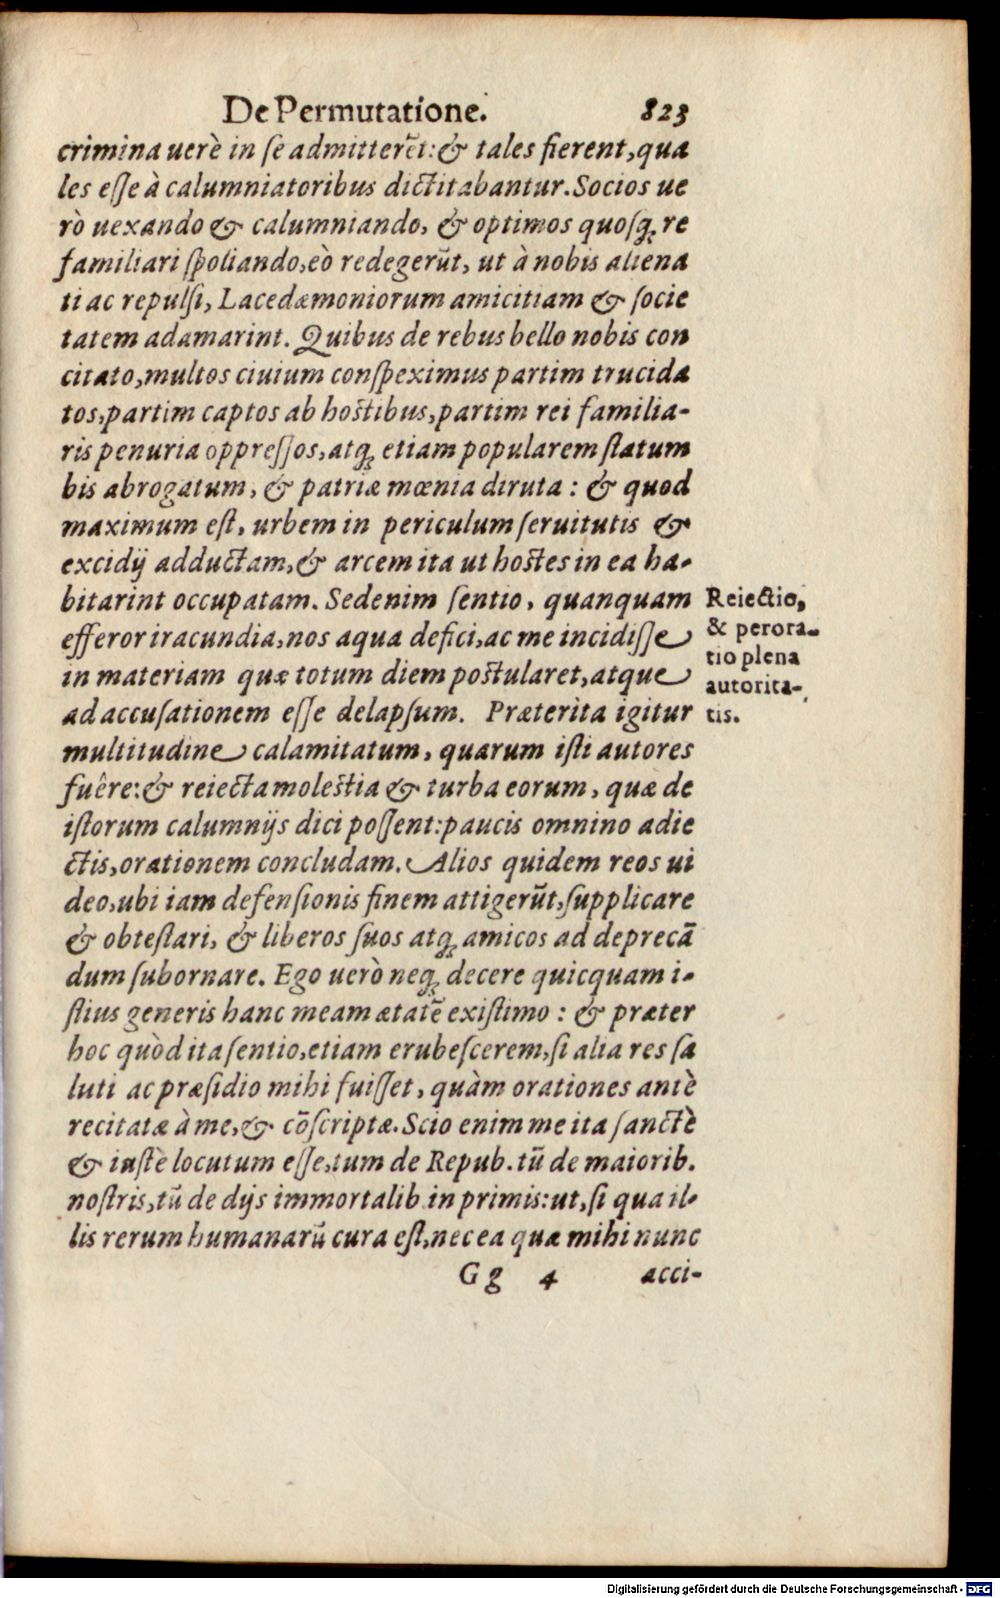 De Permutatione. 823
crimina uerè in ſe admitterēt: & tales fierent, qua
les eſſe à calumniatoribus dictitabantur. Socios ue
rò uexando & calumniando, & optimos quoſq; re
familiari ſpoliando, eò redegerūt, ut à nobis aliena
ti ac repulſi, Lacedæmoniorum amicitiam & ſocie
tatem adamarint. Quibus de rebus bello nobis con
citato, multos ciuium conſpeximus partim trucida
tos, partim captos ab hoſtibus, partim rei familia-
ris penuria oppreſſos, atq; etiam popularem ſtatum
bis abrogatum, & patriæ mœnia diruta: & quod
maximum eſt, urbem in periculum ſeruitutis &
excidij adductam, & arcem ita ut hoſtes in ea ha-
bitarint occupatam. Sedenim ſentio, quanquam
efferor iracundia, nos aqua defici, ac me incidiſſe
in materiam quæ totum diem poſtularet, atque
ad accuſationem eſſe delapſum. Præterita igitur
multitudine calamitatum, quarum iſti autores
fuêre: & reiecta moleſtia & turba eorum, quæ de
iſtorum calumnijs dici poſſent: paucis omnino adie
ctis, orationem concludam. Alios quidem reos ui
deo, ubi iam defenſionis finem attigerūt, ſupplicare
& obteſtari, & liberos ſuos atq; amicos ad deprecā
dum ſubornare. Ego uerò neq; decere quicquam i-
ſtius generis hanc meam ætatē exiſtimo: & præter
hoc quòd ita ſentio, etiam erubeſcerem, ſi alia res ſa
luti ac præſidio mihi fuiſſet, quàm orationes antè
recitatæ à me, & cōſcriptæ. Scio enim me ita ſanctè
& iuſtè locutum eſſe, tum de Repub. tū de maiorib.
noſtris, tū de dijs immortalib. in primis: ut, ſi qua il-
lis rerum humanarū cura eſt, nec ea quæ mihi nunc
Gg 4 acci-
Reiectio,
& perora-
tio plena
autorita-
tis.
Digitalisierung gefördert durch die Deutsche Forschungsgemeinschaft - DFG